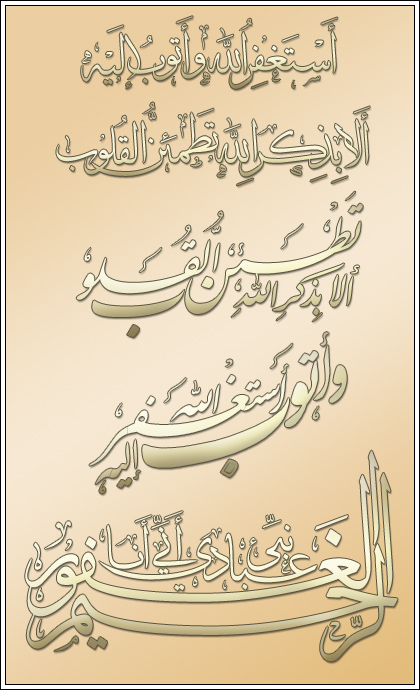 أَسْتَغْفِرُ اللهَ وَأَتُوبُ إِلَيْهِ
أَلَا بِذِكْرِ اللهِ تَطْمَئِنُّ الْقُلُوبُ
ألا بذكر الله تطمئن القلوب
أستغفر الله وأتوب إليه
نبئ عبادي أني أنا الغفور الرحيم